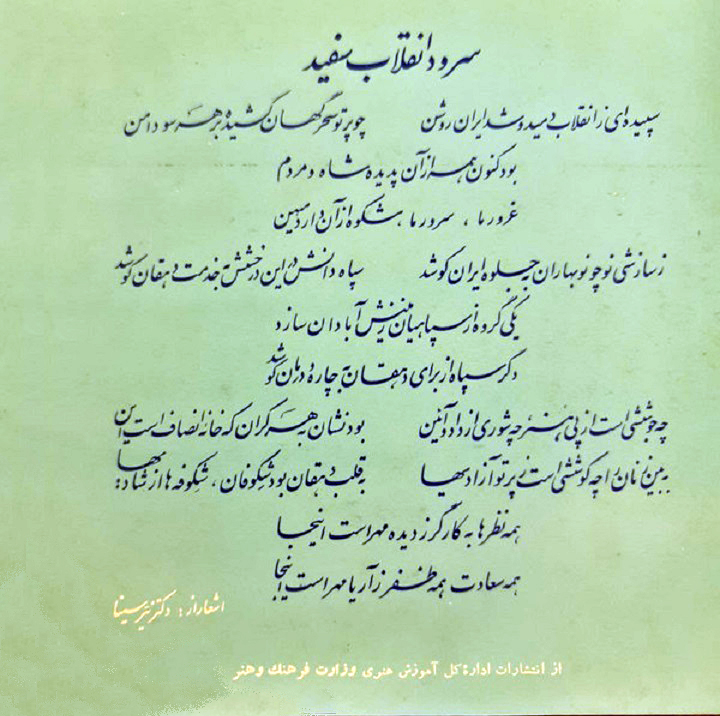 سرود انقلاب سفید
سپیده‌ای ز انقلاب دمید و شد ایران روشن چو پرتو سحرگهان کشیده بر هر سو دامن
بود کنون همه از آن پدیده شاه و مردم
غرور ما ، سرور ما ، شکوه از آن دارد میهن
ز سازشی نو چو نوبهاران به جلوه ایران کوشد سپاه دانش در این درخشش به خدمت دهقان کوشد
یکی گروه از سپاهیان زمینش آبادان سازد
دگر سپاه از برای دهقان به چارهٔ درمان کوشد
چه جوششی است از پی هنر چه شوری از داد و آئین بود نشان به هر کران که خانه انصاف است این
به بین زنان را چه کوششی است ز پرتو آزادیها به قلب دهقان بود شکوفان ، شکوفه‌ها از شادیها
همه نظرها به کارگر ز دیده مهر است اینجا
همه سعادت همه ظفر ز آریامهر است اینجا
اشعار از : دکتر نیر سینا
از انتشارات ادارهٔ کل آموزش هنری وزارت فرهنگ و هنر